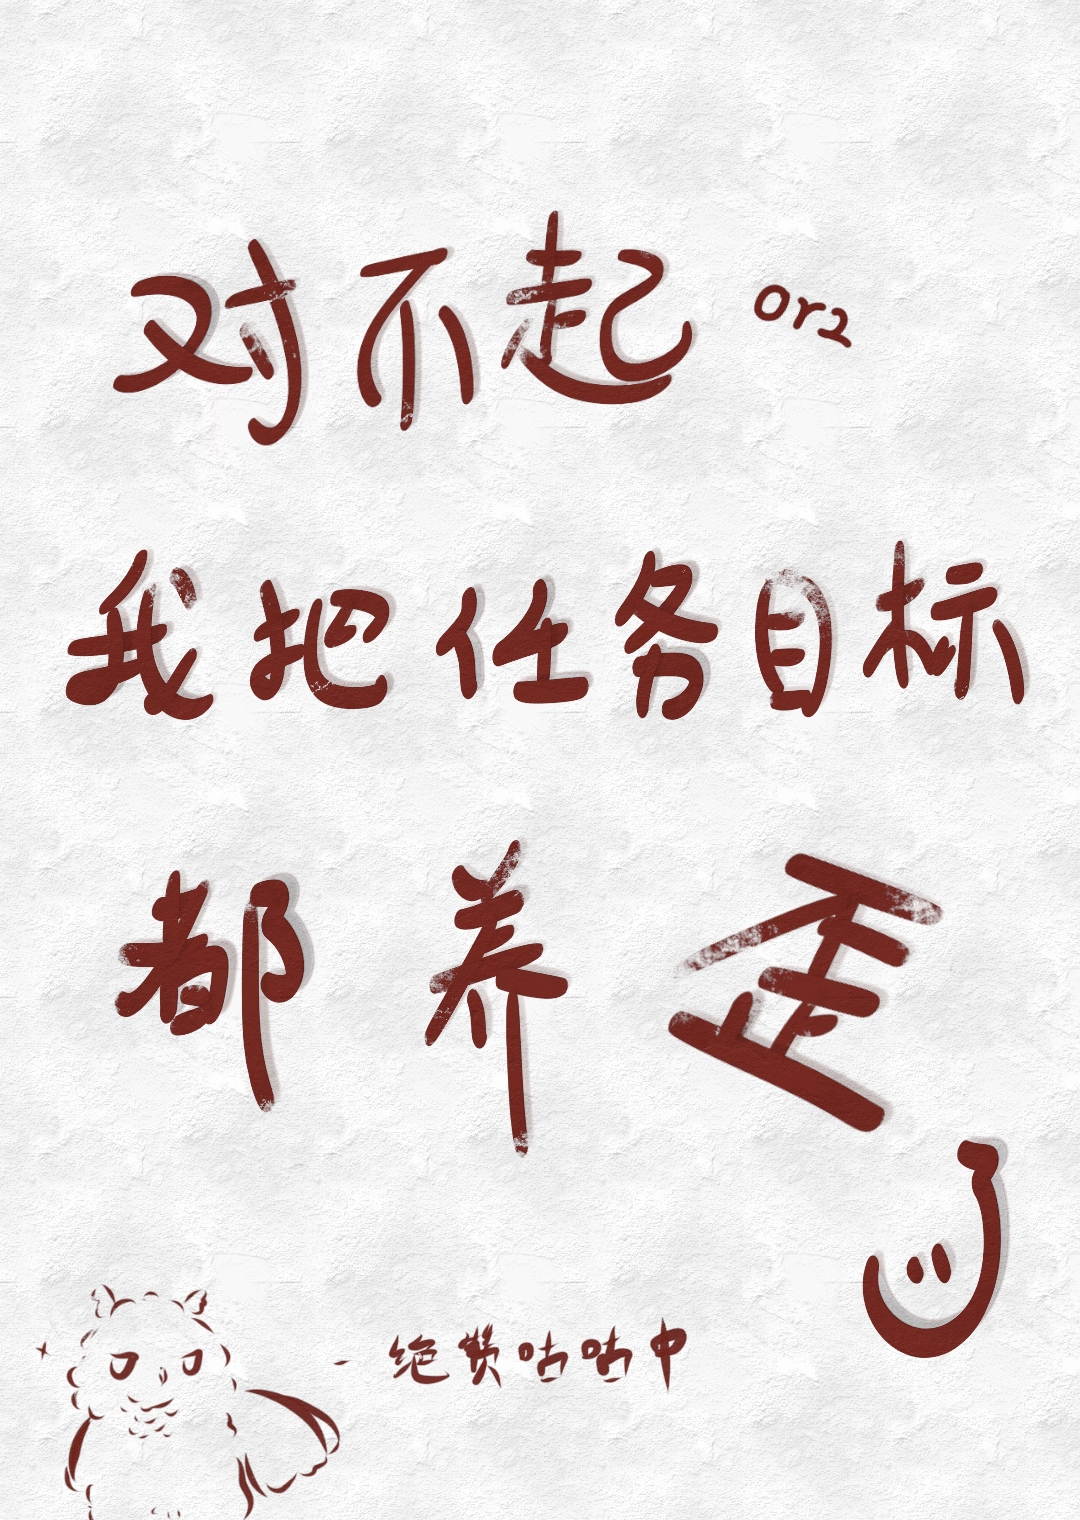 对不起 orz
我把任务目标
都养歪了
绝赞咕咕中